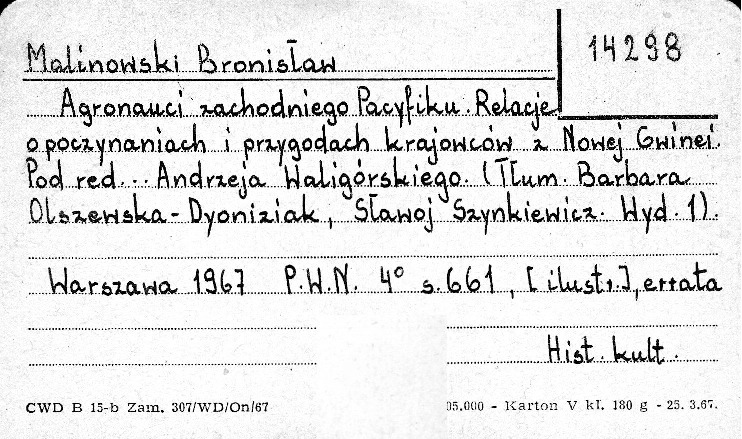 Malinowski Bronisław
14298
Agronauci zachodniego Pacyfiku. Relacje
o poczynaniach i przygodach krajowców z Nowej Gwinei.
Pod red... Andrzeja Waligórskiego. (Tłum. Barbara
Olszewska-Dyoniziak, Sławoj Szynkiewicz. Wyd. 1).
Warszawa 1967 P.W.N. 4° s. 661, [ilustr.], errata
Hist. kult.
CWD B 15-b Zam. 307/WD/On/67
05.000 - Karton V kl. 180 g - 25. 3.67.